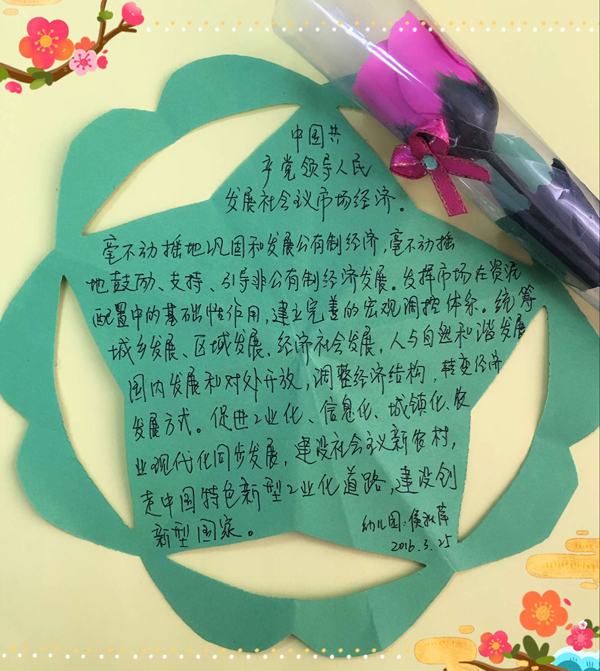 中国共
产党领导人民
发展社会主义市场经济。
毫不动摇地巩固和发展公有制经济,毫不动摇
地鼓励、支持、引导非公有制经济发展。发挥市场在资源
配置中的基础性作用,建立完善的宏观调控体系。统筹
城乡发展、区域发展、经济社会发展,人与自然和谐发展
国内发展和对外开放,调整经济结构,转变经济
发展方式。促进工业化、信息化、城镇化、农
业现代化同步发展,建设社会主义新农村,
走中国特色新型工业化道路,建设创
新型国家。
幼儿园:侯
2016.3.25